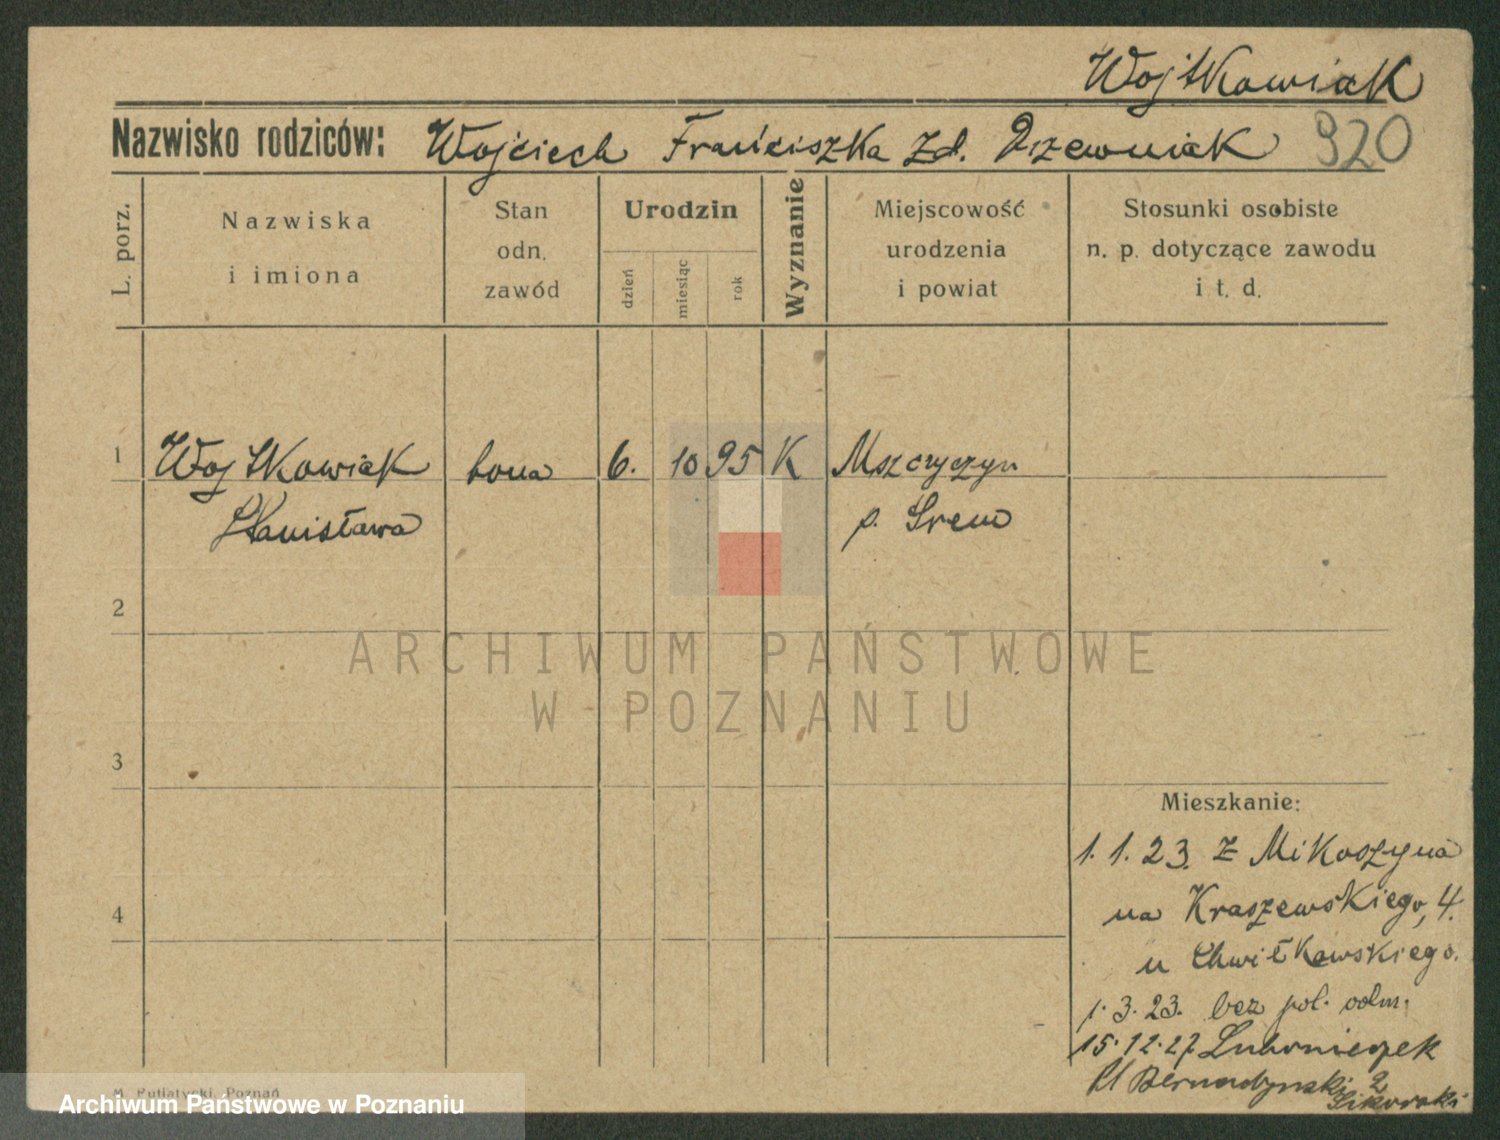 Wojtkowiak
Nazwisko rodziców: Wojciech Franciszka zd. Drzewniak 920
L. porz.
Nazwiska
i imiona
Stan
odn.
zawód
Urodzin
dzień
miesiąc
rok
Wyznanie
Miejscowość
urodzenia
i powiat
Stosunki osobiste
n. p. dotyczące zawodu
i t. d.
1 Wojtkowiak bona 6. 10 95 K Mszczyczyn
Stanisława p. Śrem
2
ARCHIWUM PAŃSTWOWE
W POZNANIU
3
Mieszkanie:
1. 1. 23. z Mikoszyna
na Kraszewskiego, 4.
4
u Chwiłkowskiego.
1. 3. 23. bez pol. odm.
15. 12. 27
Pl Bernardyński 2
Sikorski
M. Putiatycki, Poznań
Archiwum Państwowe w Poznaniu